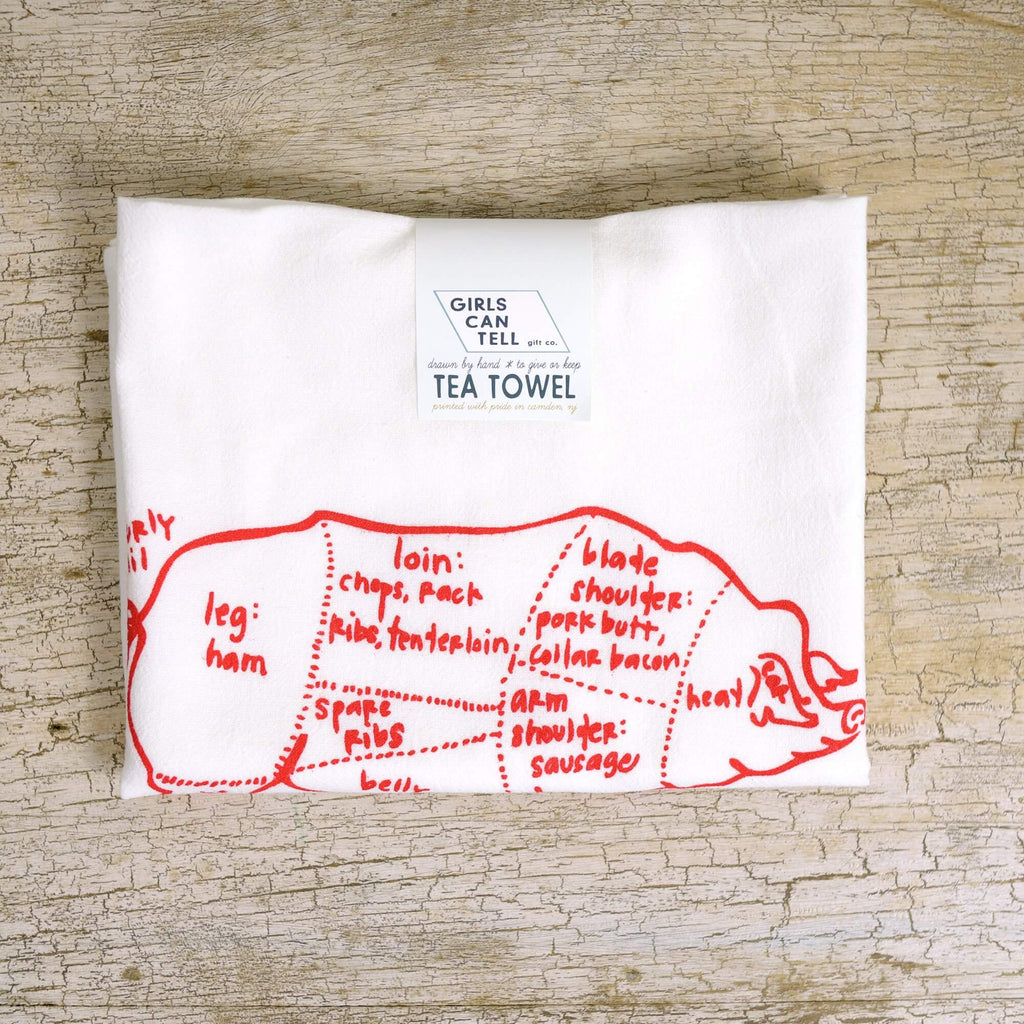 GIRLS
CAN
TELL gift co.
drawn by hand * to give or keep
TEA TOWEL
printed with pride in camden, nj
leg:
ham
loin:
chops, rack
ribs, tenderloin
blade
shoulder:
pork butt,
collar bacon
head
spare
ribs
arm
shoulder:
sausage
belly